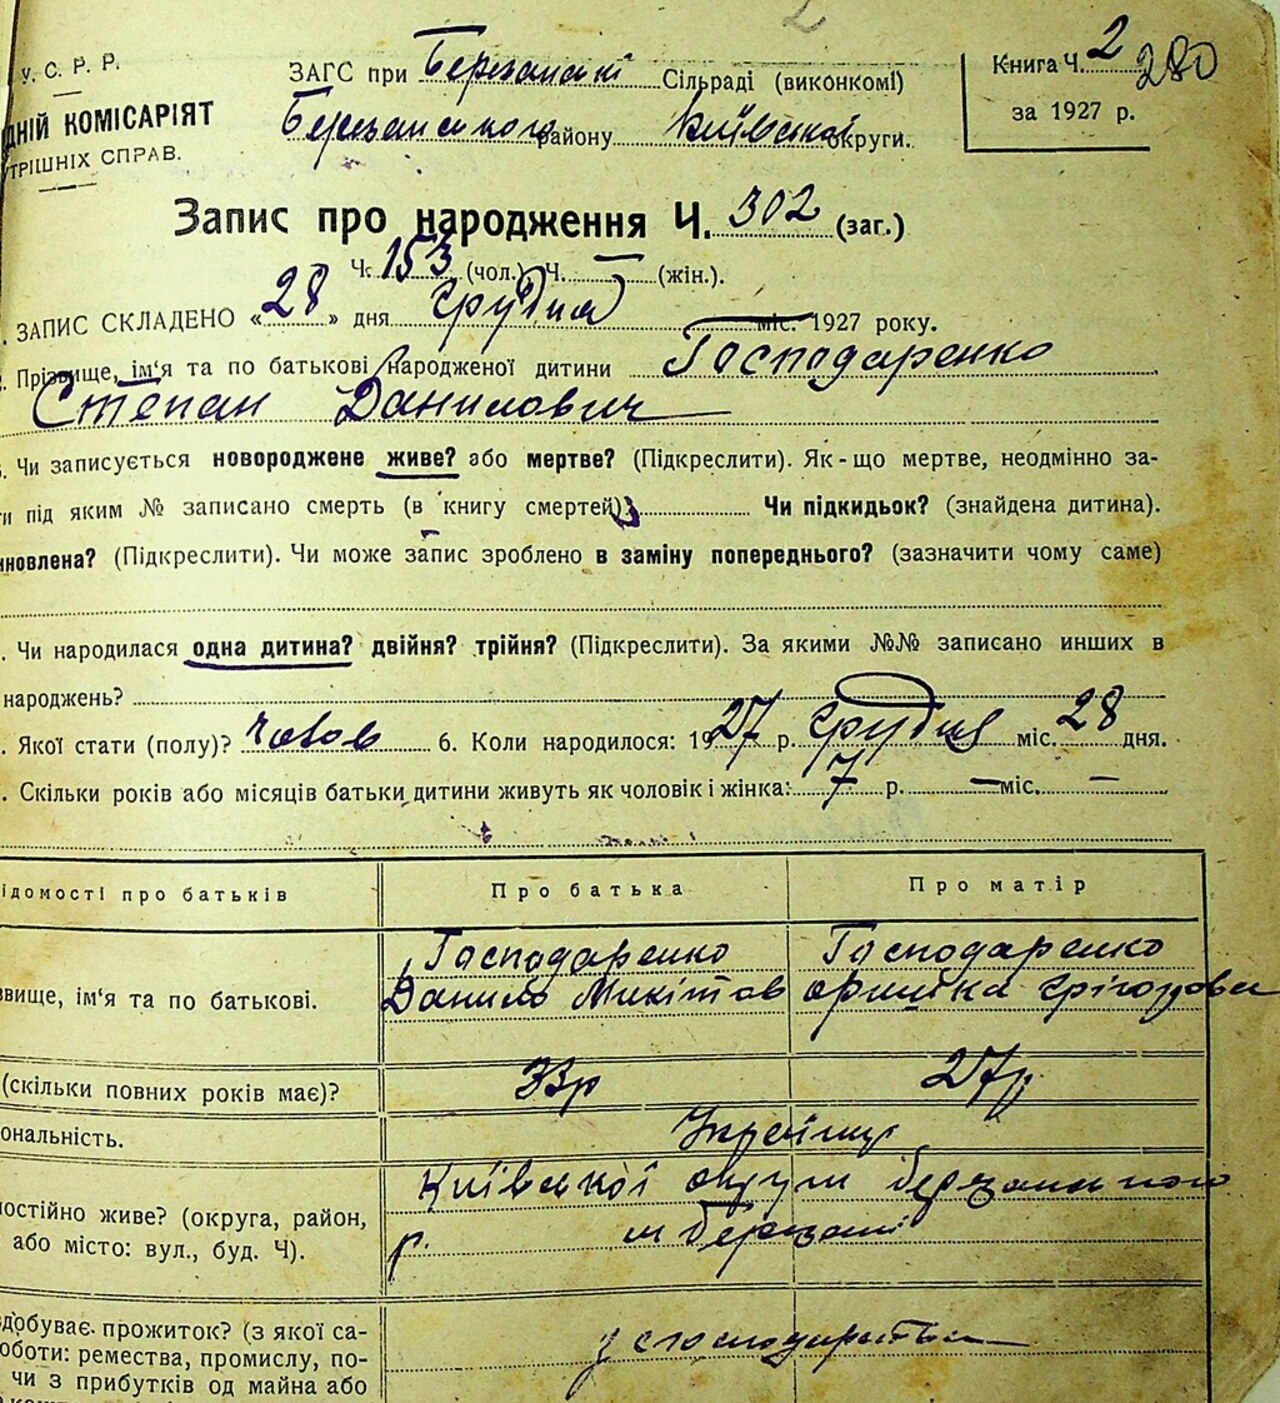 2
У. С. Р. Р.
ДНІЙ КОМІСАРІЯТ
ТРІШНІХ СПРАВ.
ЗАГС при Березанські Сільраді (виконкомі)
Березанського району Київської округи.
Книга Ч. 2 280
за 1927 р.
Запис про народження Ч. 302 (заг.)
Ч. 153 (чол.) Ч. — (жін.).
. ЗАПИС СКЛАДЕНО « 28 » дня грудня міс. 1927 року.
2. Прізвище, ім'я та по батькові народженої дитини Господаренко
Степан Данилович
3. Чи записується новороджене живе? або мертве? (Підкреслити). Як-що мертве, неодмінно за-
ти під яким № записано смерть (в книгу смертей) Чи підкидьок? (знайдена дитина).
новлена? (Підкреслити). Чи може запис зроблено в заміну попереднього? (зазначити чому саме)
. Чи народилася одна дитина? двійня? трійня? (Підкреслити). За якими №№ записано инших в
народжень?
. Якої стати (полу)? 6. Коли народилося: 1927 р. грудня міс. 28 дня.
. Скільки років або місяців батьки дитини живуть як чоловік і жінка: 7 р. — міс. —
ідомості про батьків Про батька Про матір
Господаренко Господаренко
звище, ім'я та по батькові. Данило Микітов
(скільки повних років має)? 33р 27р.
ональність. Українці
Київської округи
остійно живе? (округа, район,
р. м Березані
або місто: вул., буд. Ч).
здобуває прожиток? (з якої са-
з господарства
оботи: ремества, промислу, по-
чи з прибутків од майна або